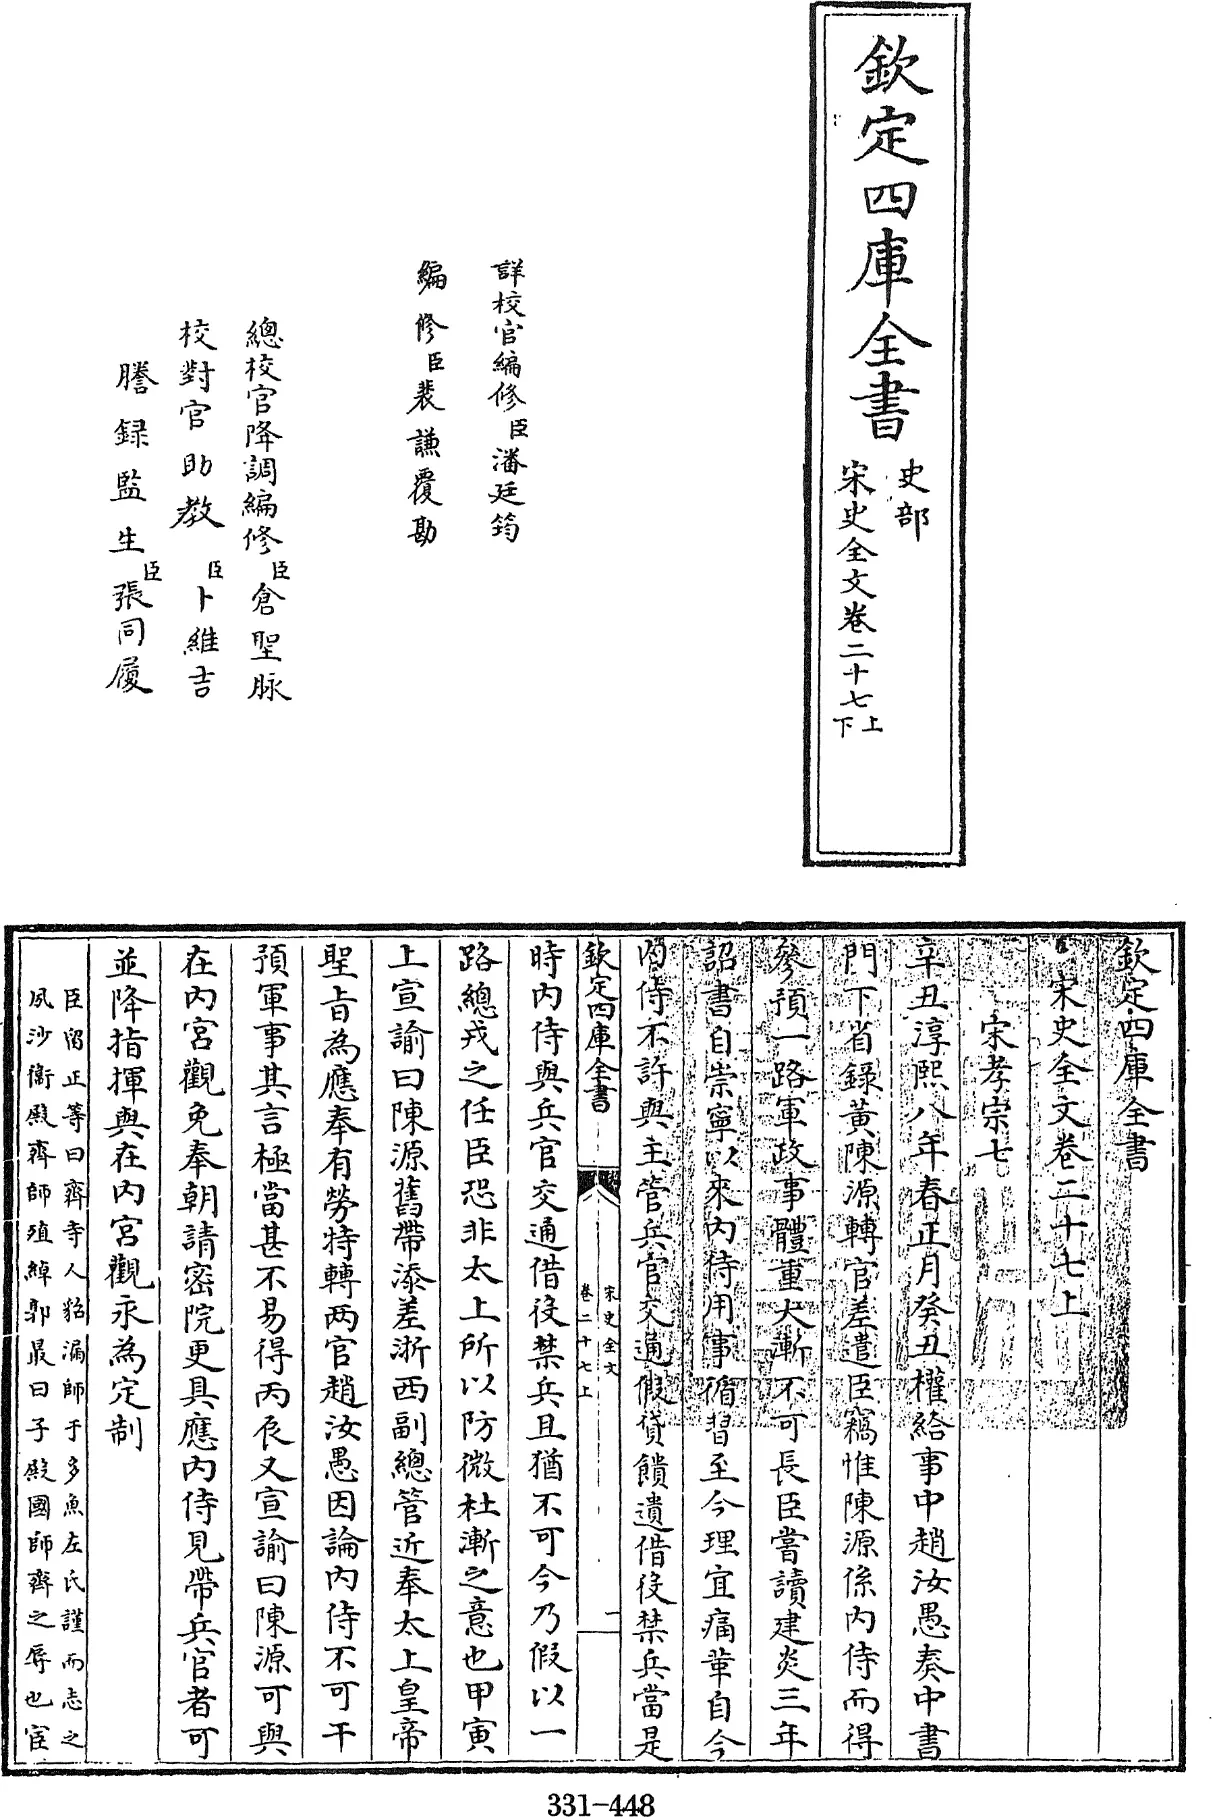 欽定四庫全書
史部
宋史全文卷二十七上下
詳校官編修臣潘廷筠
編修臣裴謙覆勘
總校官降調編修臣倉聖脉
校對官助教臣卜維吉
謄録監生臣張同履
欽定四庫全書
宋史全文卷二十七上
宋孝宗七
辛丑淳熙八年春正月癸丑權給事中趙汝愚奏中書
門下省錄黃陳源轉官差遣臣竊惟陳源係内侍而得
參預一路軍政事體重大漸不可長臣嘗讀建炎三年
詔書自崇寧以來内侍用事循習至今理宜痛革自今
内侍不許與主管兵官交通假貸饋遺借役禁兵當是
欽定四庫全書
宋史全文
卷二十七上
一
時内侍與兵官交通借役禁兵且猶不可今乃假以一
路總戎之任臣恐非太上所以防微杜漸之意也甲寅
上宣諭曰陳源舊帶添差浙西副總管近奉太上皇帝
聖旨為應奉有勞特轉两官趙汝愚因論内侍不可干
預軍事其言極當甚不易得丙辰又宣諭曰陳源可與
在内宮觀免奉朝請密院更具應内侍見帶兵官者可
並降指揮與在内宮觀永為定制
臣留正等曰齊寺人貂漏師于多魚左氏謹而志之
夙沙衞殿齊師殖綽郭最曰子殿國師齊之辱也宦
331-448